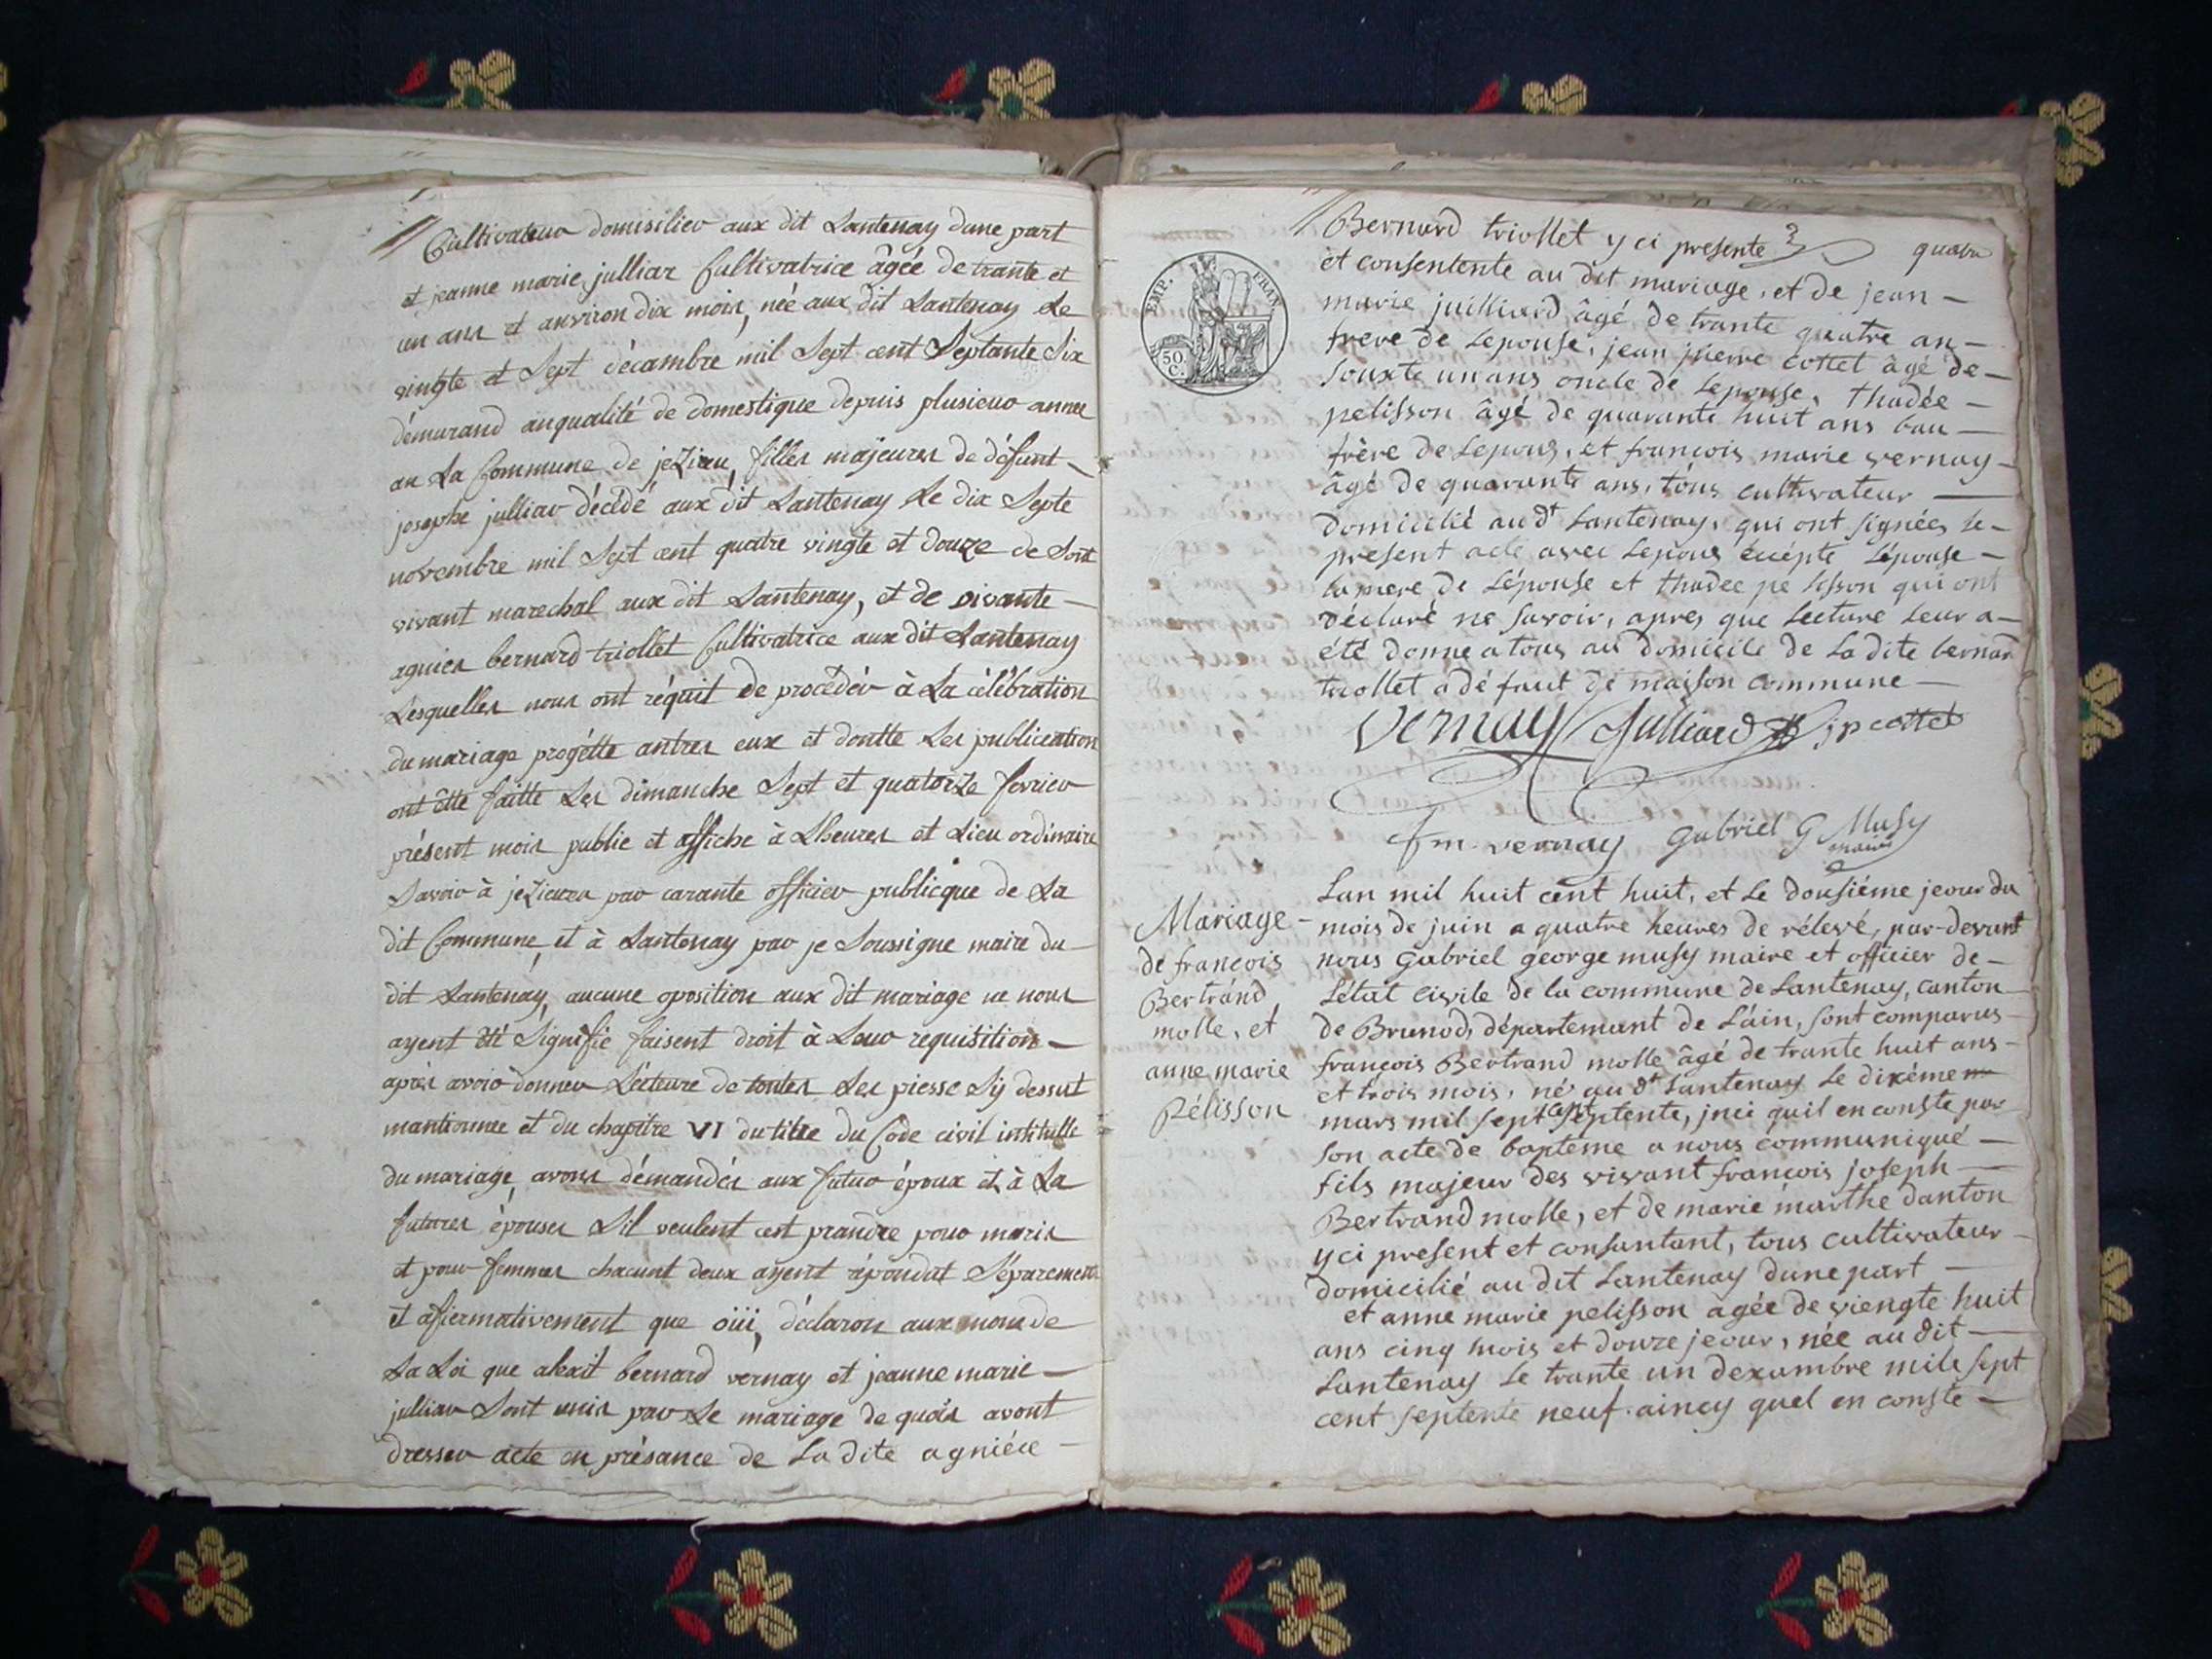 Cultivateur domisilier aux dit Lantenay dune part
et jeanne marie julliar Cultivatrice âgée de trante et
un ans et anviron dix mois, née aux dit Lantenay Le
vingte et Sept décambre mil Sept cent Septante Six
démurand anqualité de domestique depuis plusieur annee
an La Commune de jeZieu, filles majeures de défunt
josephe julliar décédé aux dit Lantenay Le dix Septe
novembre mil Sept cent quatre vingte et douze de Sont
vivant marechal aux dit Lantenay, et de vivante
agnies bernard triollet Cultivatrice aux dit Lantenay
Lesquelles nous ont réquit de procédér à La célébration
du mariage progétte antres eux et dontte Les publication
ont êtte faitte Les dimanche Sept et quatorze fevrier
présent mois public et affiche à Lheures et Lieu ordinaire
Savoir à jeZieux par carante officier publicque de La
dit Commune, et à Lantenay par je Soussigne maire du
dit Lantenay, aucune oposition aux dit mariage ne nous
ayent été Signifié faisent droit à Leur requisition
après avoir donner Lecteure de toutes Les piesse Sÿ dessut
mantionnee et du chapitre VI du titre du Code civil intitulle
du mariage, avons démandés aux futur époux et à La
futures épouses Sil veulent cest prandre pour maris
et pour femmes chacunt deux ayent répondut Séparement
et afiermativement que oüi, déclarons aux nom de
La Loi que alexit bernard vernay et jeanne marie
julliar Sont unis par Le mariage de quois avont
dresser acte en présance de La dite agniéce
Bernard triollet y ci presente quatre
et consentente au dit mariage, et de jean
marie juilliard âgé de trante quatre an
frere de Lepouse, jean pierre cottet âgé de
souxte un ans oncle de Lepouse, thadée
pelisson âgé de quarante huit ans bau
frère de Lepous, et francois marie vernay
âgé de quarante ans, tous cultivateur
domicilié au dt Lantenay, qui ont signées le
present acte avec Lepous écépte Lépouse
la mere de Lépouse et thadee pelisson qui ont
déclaré ne savoir, apres que Lecture leur a
été donne a tous au domicile de La dite bernard
triollet a défaut de maison commune
Vernay Julliard jp cottet
fm. vernay Gabriel G Musy
maire
EMP. FRAN
50
C.
Mariage
de francois
Bertrand
molle, et
anne marie
Pélisson
Lan mil huit cent huit, et Le dousiéme jeour du
mois de juin a quatre heures de rélevé, par-devant
nous Gabriel george musy maire et officier de
Létat civile de la commune de Lantenay, canton
de Brunod, département de Láin, sont comparus
françois Bertrand molle âgé de trante huit ans
et trois mois, né au dt Lantenay Le dixéme
mars mil sept cent septente, jnci quil en conste par
son acte de bapteme a nous communiqué
fils majeur des vivant francois joseph
Bertrand molle, et de marie marthe danton
y ci present et consantant, tous cultivateur
domicilié au dit Lantenay dune part
et anne marie pelisson agée de viengte huit
ans cinq mois et douze jeour, née au dit
Lantenay Le trante un dexambre mile sept
cent septente neuf aincy quel en conste